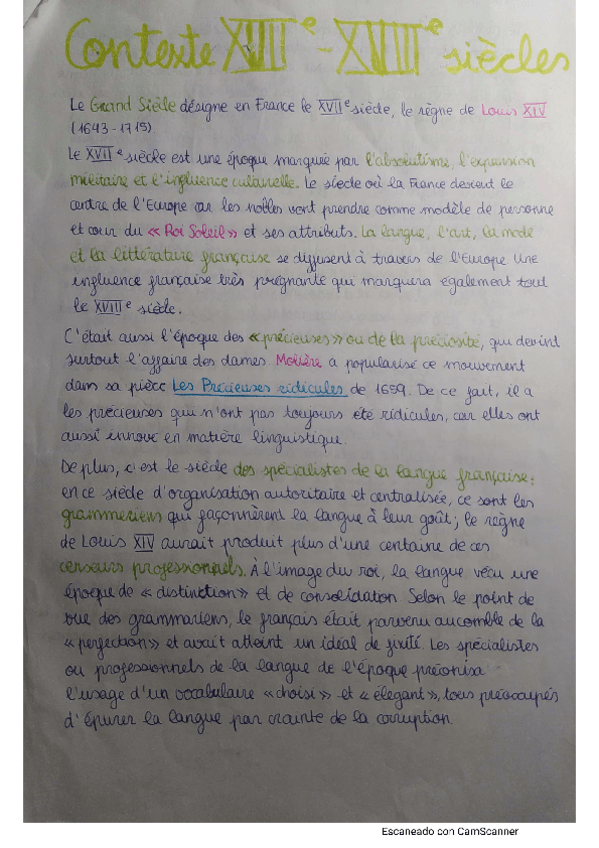 Contexte XVIIe - XVIIIe siècles
Le Grand Siècle désigne en France le XVIIe siècle, le règne de Louis XIV
(1643-1715)
Le XVIIe siècle est une époque marquée par l'absolutisme, l'expansion
militaire et l'influence culturelle. Le siècle où la France devient le
centre de l'Europe car les nobles vont prendre comme modèle de personne
et cour du « Roi Soleil » et ses attributs. La langue, l'art, la mode
et la littérature française se diffusent à travers de l'Europe. Une
influence française très prégnante qui marquera également tout
le XVIIIe siècle.
C'était aussi l'époque des « précieuses » ou de la préciosité, qui devint
surtout l'affaire des dames. Molière a popularisé ce mouvement
dans sa pièce Les Précieuses ridicules de 1659. De ce fait, il a
les précieuses qui n'ont pas toujours été ridicules, car elles ont
aussi innové en matière linguistique.
De plus, c'est le siècle des spécialistes de la langue française:
en ce siècle d'organisation autoritaire et centralisée, ce sont les
grammeriens qui façonnèrent la langue à leur goût; le règne
de Louis XIV aurait produit plus d'une centaine de ces
censeurs professionnels. À l'image du roi, la langue vécu une
époque de « distinction » et de consolidation. Selon le point de
vue des grammariens, le français était parvenu au comble de la
« perfection » et avait atteint un idéal de fixité. Les spécialistes
ou professionnels de la langue de l'époque préonisa
l'usage d'un vocabulaire « choisi » et « élegant », tous préocupés
d'épurer la langue par crainte de la corruption.
Escaneado con CamScanner